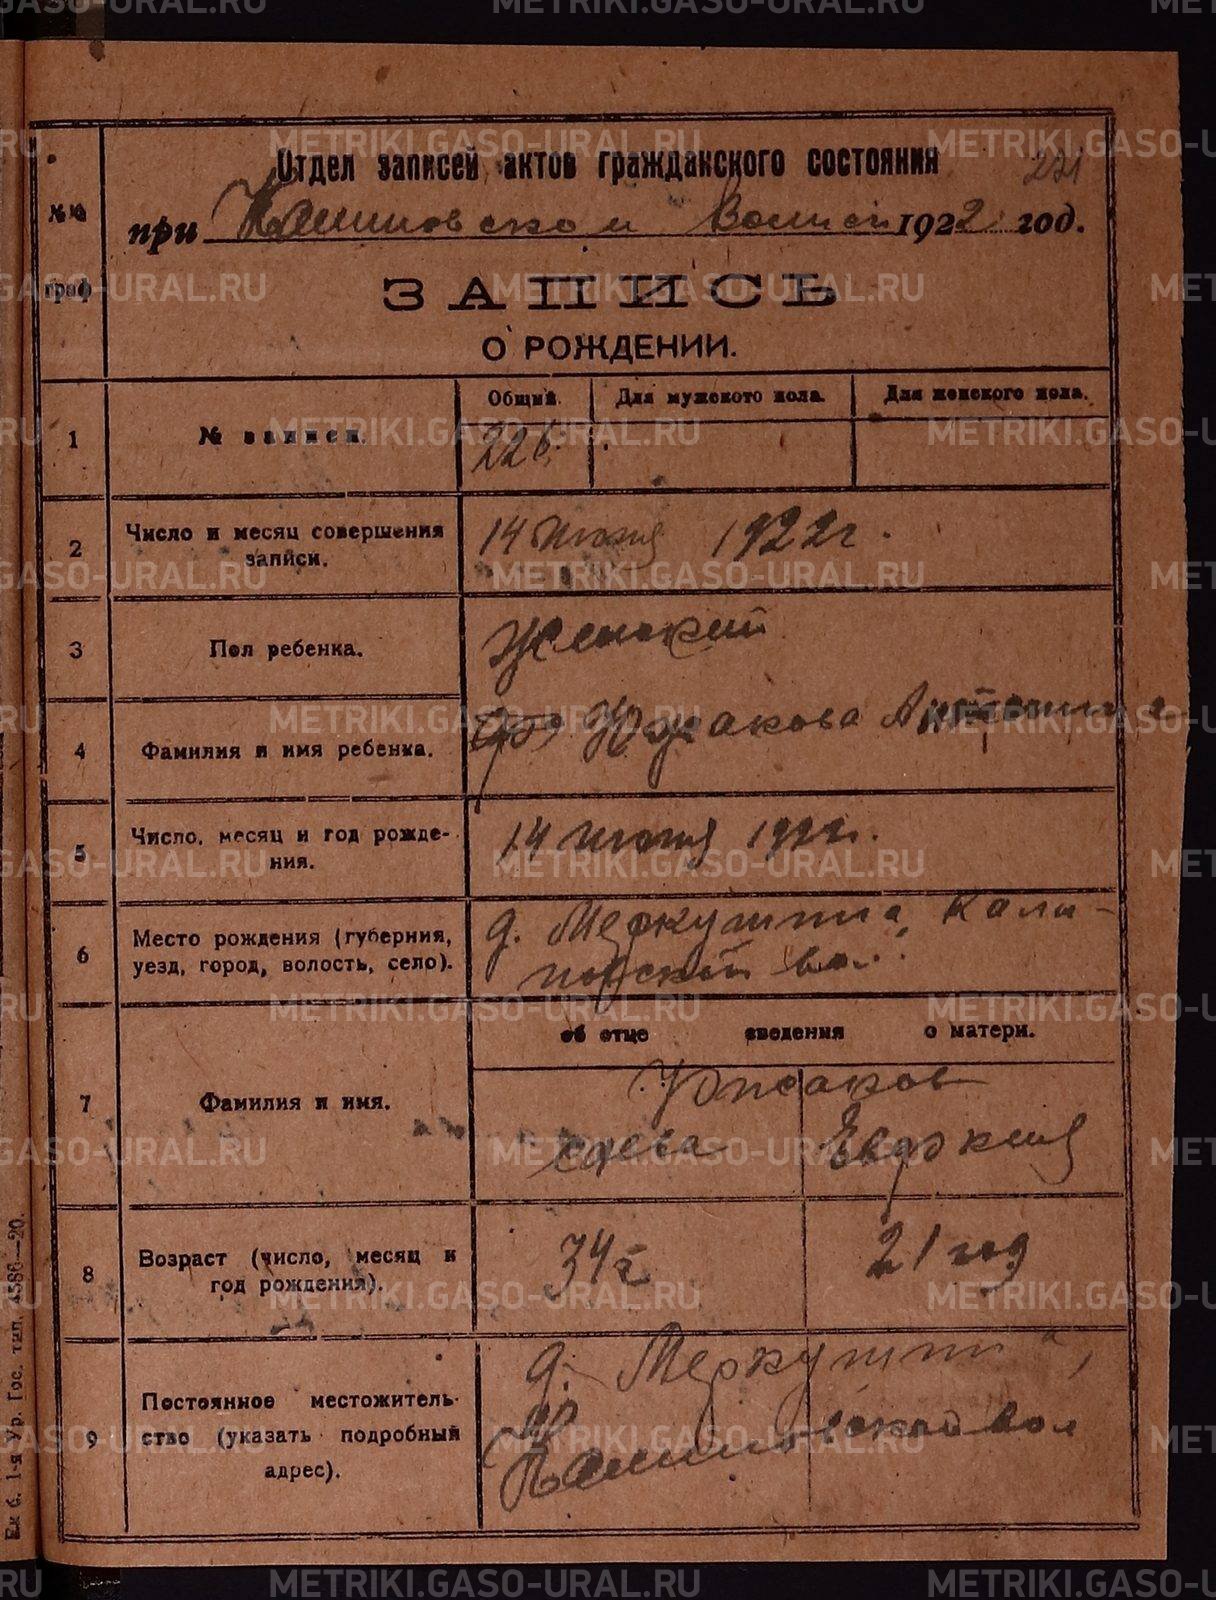 Отдел записей актов гражданского состояния 221
№№ граф
при Калиновском Волисп 1922 год.
ЗАПИСЬ
О РОЖДЕНИИ.
Общий. Для мужского пола. Для женского пола.
1 № записи. 226.
2 Число и месяц совершения записи. 14 июня 1922 г.
3 Пол ребенка. Женский
4 Фамилия и имя ребенка. Южакова Антонина
5 Число, месяц и год рожде-
ния. 14 июня 1922 г.
6 Место рождения (губерния, д. Меркушина, Кали-
уезд, город, волость, село). новской вол.
об отце сведения о матери.
Южаков
7 Фамилия и имя.
Савва Евдокия
8 Возраст (число, месяц и
год рождения). 34 г. 21 год
9 Постоянное местожитель-
ство (указать подробный
адрес).
д. Меркушина,
Калиновской вол
Ек б. 1-я Ур. Гос. тип. 4586—20.
METRIKI.GASO-URAL.RU